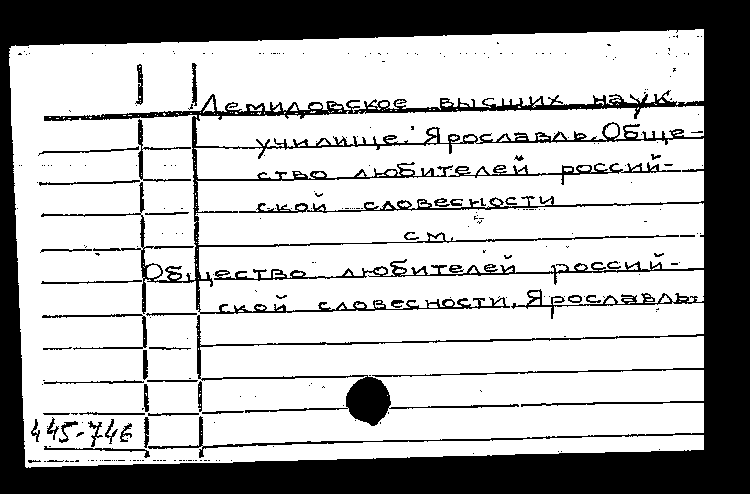 Демидовское высших наук
училище. Ярославль. Обще-
ство любителей россий-
ской словесности
см.
Общество любителей россий-
ской словесности. Ярославль.
445-746